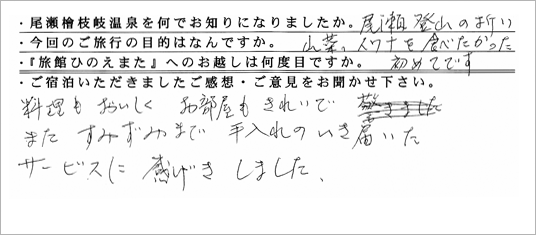 ・尾瀬檜枝岐温泉を何でお知りになりましたか。尾瀬登山の折り
・今回のご旅行の目的はなんですか。山菜、イワナを食べたかった
・『旅館ひのえまた』へのお越しは何度目ですか。初めてです
・ご宿泊いただきましたご感想・ご意見をお聞かせ下さい。
料理もおいしく お部屋もきれいで 驚きました
また すみずみまで 手入れのいき届いた
サービスに 感げき しました、